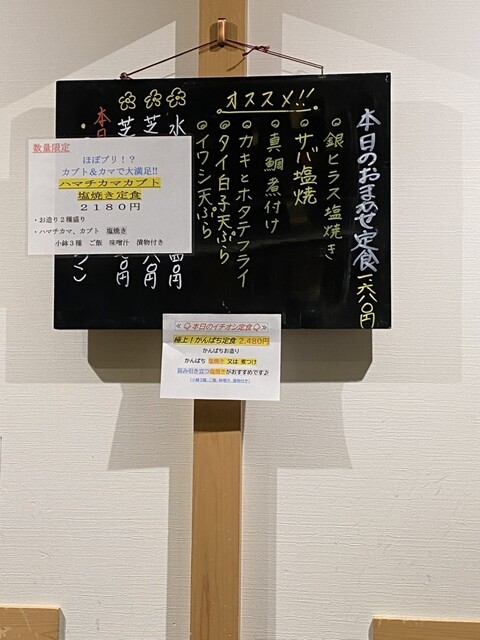 本日のおまかせ定食 一.六八〇円
オススメ!!
銀ヒラス塩焼き
サバ塩焼
真鯛煮付け
カキとホタテフライ
タイ白子天ぷら
イワシ天ぷら
水
芝
八〇円
芝
〇円
本日
数量限定
ほぼブリ！？
カブト＆カマで大満足!!
ハマチカマカブト
塩焼き定食
２１８０円
・お造り２種盛り
・ハマチカマ、カブト 塩焼き
小鉢３種 ご飯 味噌汁 漬物付き
≪本日のイチオシ定食≫
極上！かんぱち定食 2,480円
かんぱちお造り
かんぱち 塩焼き 又は 煮つけ
旨み引き立つ塩焼きがおすすめです♪
(小鉢3種、ご飯、味噌汁、漬物付き)